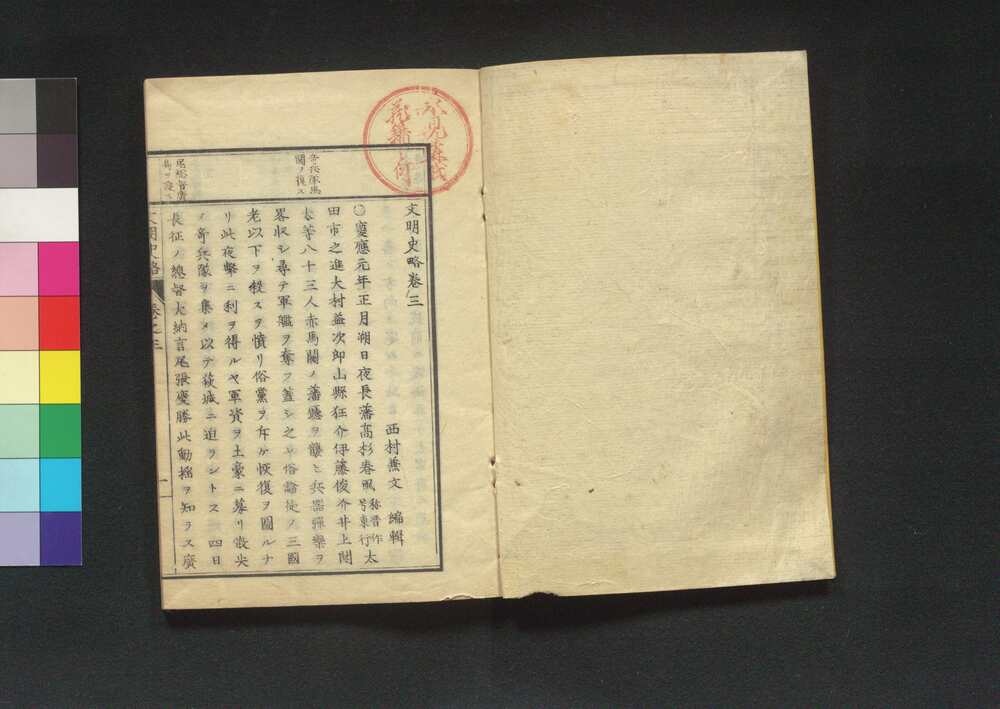 文明史略卷三
西村兼文 編輯
○慶應元年正月朔日夜長藩高杉春風 称晋作 号東行 太
田市之進大村益次郎山縣狂介伊藤俊介井上聞
太等八十三人赤馬關ノ藩廳ヲ襲ヒ兵器彈藥ヲ
畧収シ尋テ軍艦ヲ奪フ蓋シ之ヤ俗論徒ノ三國
老以下ヲ殺スヲ憤リ俗黨ヲ斥ケ恢復ヲ圖ルナ
リ此夜撃ニ利ヲ得ルヤ軍資ヲ土豪ニ募リ散失
ノ奇兵隊ヲ集メ以テ萩城ニ迫ラントス 四日
長征ノ總督大納言尾張慶勝此動揺ヲ知ラス廣
奇兵隊馬
關ヲ復ス
尾総督廣
文明史略 卷之三
一